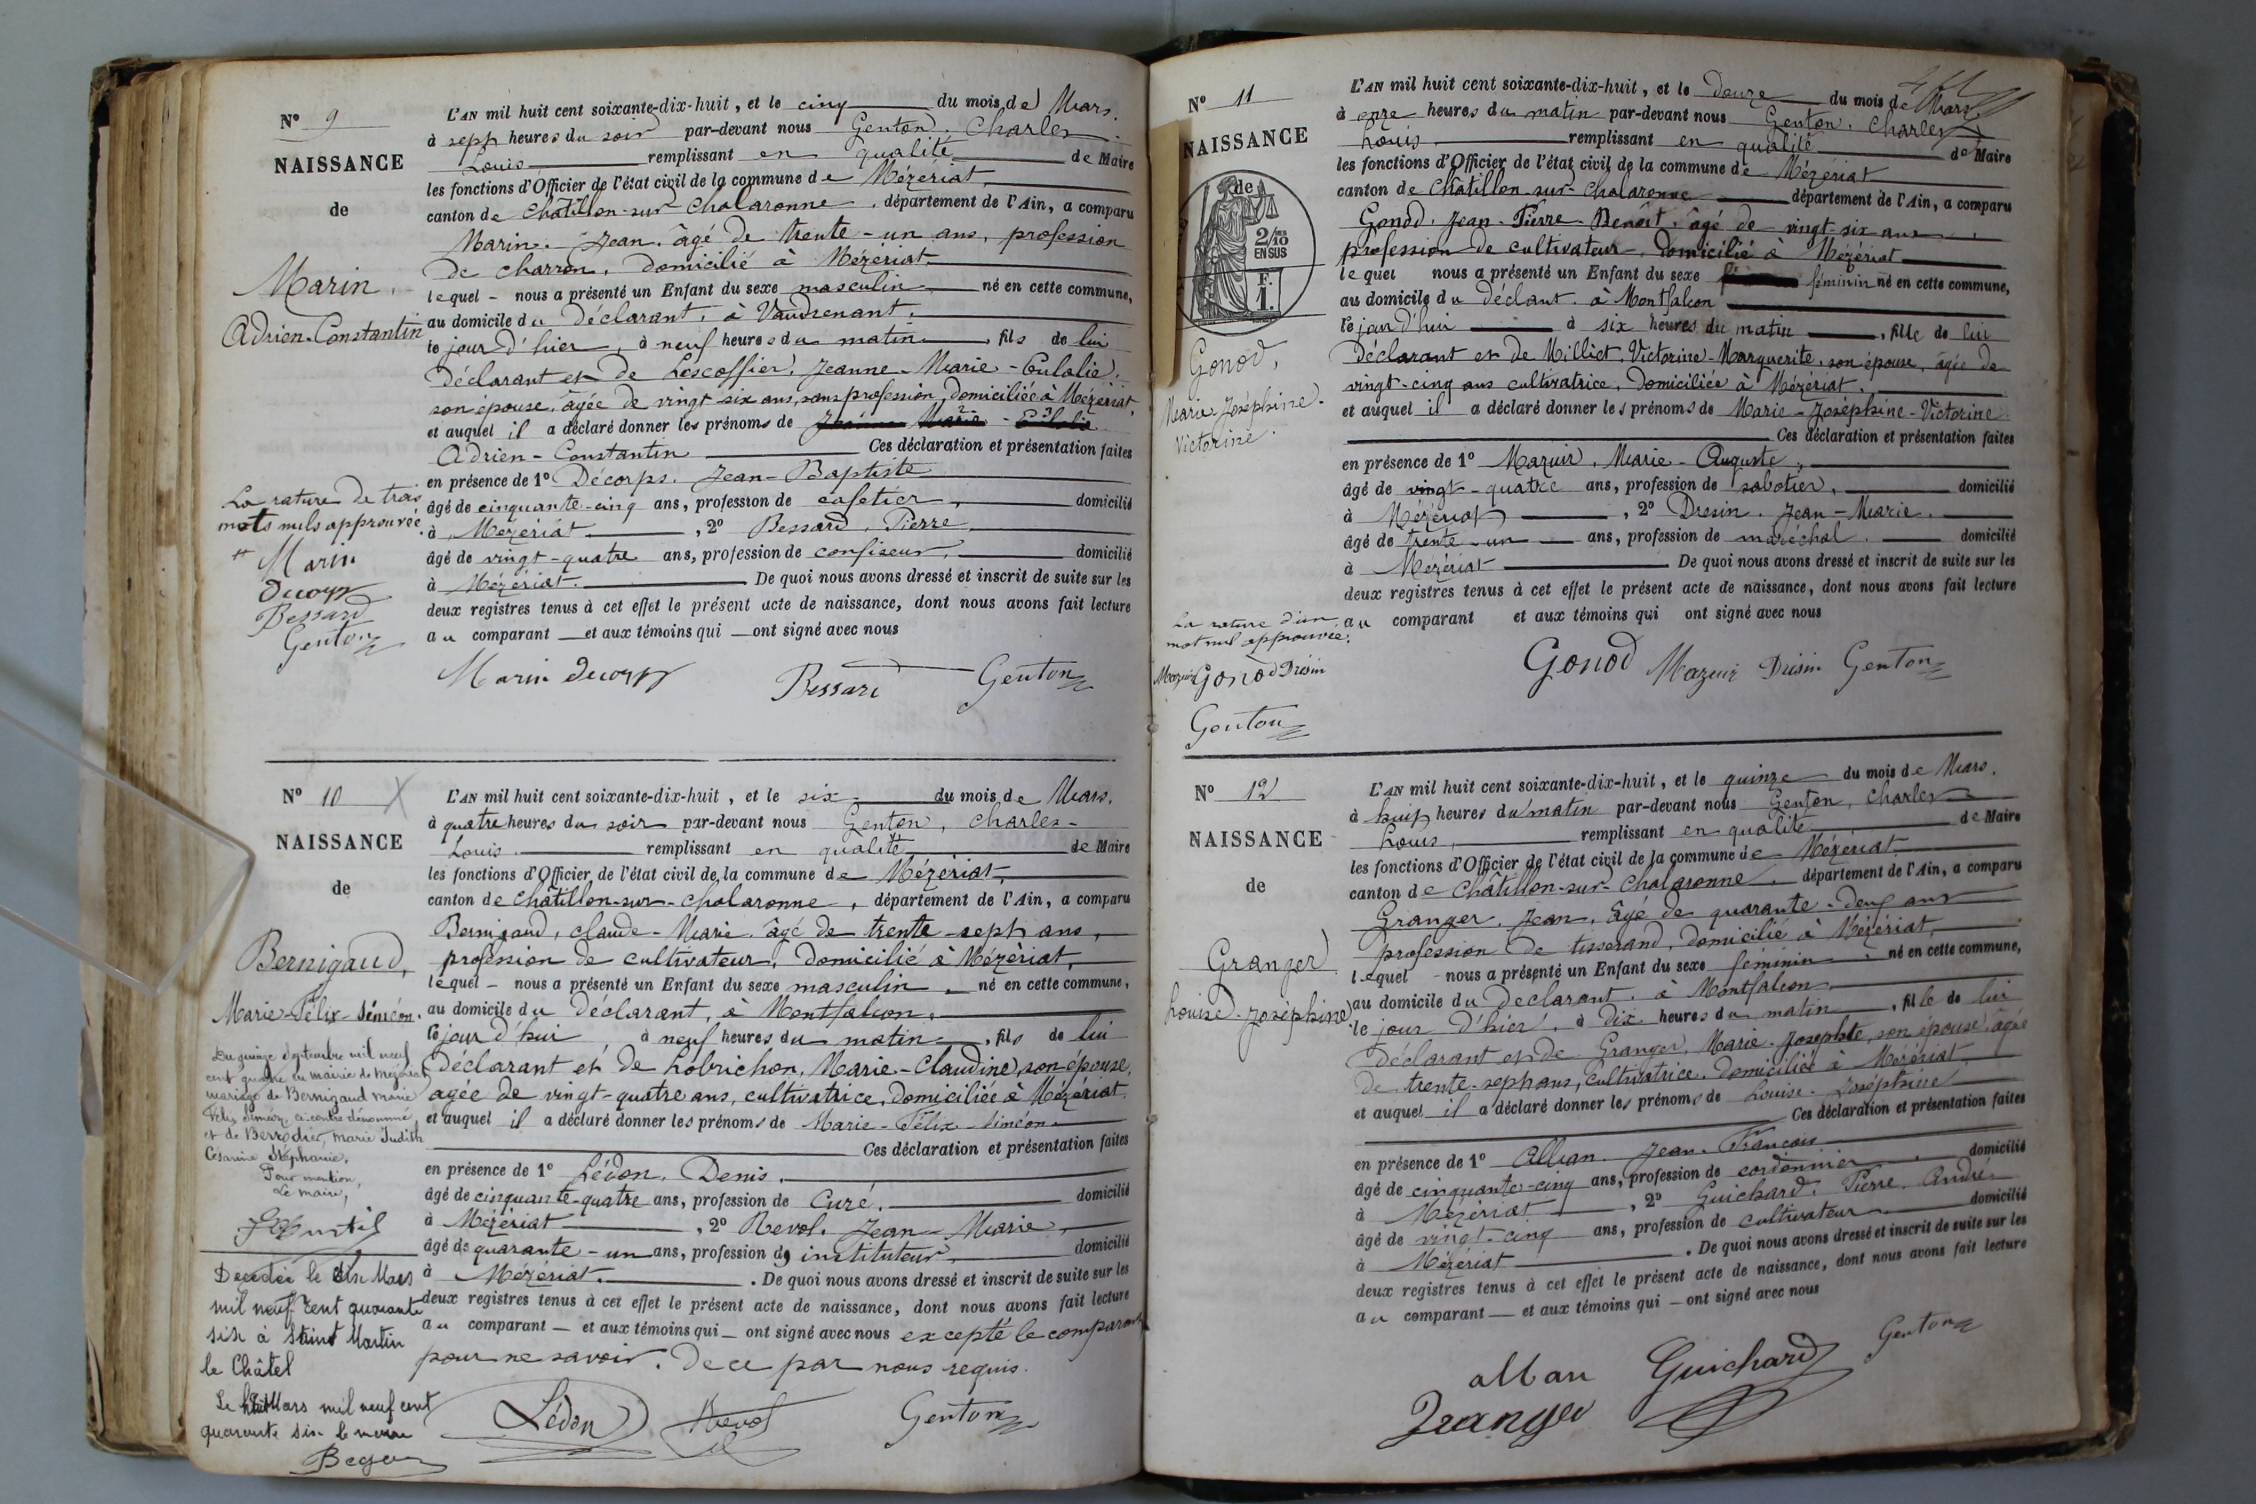 N° 9
NAISSANCE
de
Marin.
Adrien-Constantin
La rature de trois
mots nuls approuvée
Marin
Decorps
Bessard
Genton
L'AN mil huit cent soixante-dix-huit, et le cinq du mois de Mars.
à sept heures du soir par-devant nous Genton, Charles
Louis remplissant en qualité de Maire
les fonctions d'Officier de l'état civil de la commune de Mézériat,
canton de Châtillon-sur-Chalaronne, département de l'Ain, a comparu
Marin, Jean, âgé de trente-un ans, profession
de charron, domicilié à Mézériat
lequel - nous a présenté un Enfant du sexe masculin né en cette commune,
au domicile du déclarant, à Vaudrenant,
le jour d'hier, à neuf heures du matin, fils de lui
déclarant et de Lescoffier, Jeanne-Marie-Eulalie,
son épouse, âgée de vingt-six ans, sans profession, domiciliée à Mézériat,
et auquel il a déclaré donner les prénoms de
Adrien-Constantin Ces déclaration et présentation faites
en présence de 1° Décorps, Jean-Baptiste
âgé de cinquante-cinq ans, profession de cafetier, domicilié
à Mézériat, 2° Bessard, Pierre,
âgé de vingt-quatre ans, profession de confiseur, domicilié
à Mézériat. De quoi nous avons dressé et inscrit de suite sur les
deux registres tenus à cet effet le présent acte de naissance, dont nous avons fait lecture
au comparant et aux témoins qui ont signé avec nous
Marin Decorps Bessard Genton
N° 10 X
NAISSANCE
de
Bernigaud,
Marie-Félix-Siméon.
Du quinze septembre mil neuf
cent quatre en mairie de Mézériat
mariage de Bernigaud Marie
Félix Siméon ci-contre dénommé
et de Berrodier, Marie Judith
Césarine Stéphanie.
Pour mention,
Le maire,
Décédé le six Mars
mil neuf cent quarante
six à Saint Martin
le Châtel
Le huit Mars mil neuf cent
quarante six le maire
L'AN mil huit cent soixante-dix-huit, et le six du mois de Mars.
à quatre heures du soir par-devant nous Genton, Charles-
Louis remplissant en qualité de Maire
les fonctions d'Officier de l'état civil de la commune de Mézériat,
canton de Châtillon-sur-Chalaronne, département de l'Ain, a comparu
Bernigaud, Claude-Marie, âgé de trente-sept ans,
profession de cultivateur, domicilié à Mézériat,
lequel - nous a présenté un Enfant du sexe masculin né en cette commune,
au domicile du déclarant, à Montfalcon.
le jour d'hui à neuf heures du matin, fils de lui
déclarant et de Lobrichon, Marie-Claudine, son épouse,
agée de vingt-quatre ans, cultivatrice, domiciliée à Mézériat.
et auquel il a déclaré donner les prénoms de Marie-Félix-Siméon.
Ces déclaration et présentation faites
en présence de 1° Lédon, Denis.
âgé de cinquante-quatre ans, profession de Curé. domicilié
à Mézériat, 2° Revol, Jean-Marie,
âgé de quarante-un ans, profession de instituteur domicilié
à Mézériat. De quoi nous avons dressé et inscrit de suite sur les
deux registres tenus à cet effet le présent acte de naissance, dont nous avons fait lecture
au comparant et aux témoins qui ont signé avec nous excepté le comparant
pour ne savoir. De ce par nous requis.
Lédon Revol Genton
N° 11
NAISSANCE
de
2/10 EN SUS
F. 1.
Gonod,
Marie-Joséphine-
Victorine.
La rature d'un
mot nul approuvée.
Mazuir Gonod Drisin
Genton
L'AN mil huit cent soixante-dix-huit, et le douze du mois de Mars
à onze heures du matin par-devant nous Genton, Charles
Louis remplissant en qualité de Maire
les fonctions d'Officier de l'état civil de la commune de Mézériat
canton de Châtillon-sur-Chalaronne département de l'Ain, a comparu
Gonod, Jean-Pierre-Benoît, âgé de vingt-six ans
profession de cultivateur, domicilié à Mézériat
lequel nous a présenté un Enfant du sexe féminin né en cette commune,
au domicile du déclant. à Montfalcon
le jour d'hui à six heures du matin, fille de lui
déclarant et de Milliet, Victorine-Marguerite, son épouse, âgée de
vingt-cinq ans cultivatrice, domiciliée à Mézériat.
et auquel il a déclaré donner les prénoms de Marie-Joséphine-Victorine
Ces déclaration et présentation faites
en présence de 1° Mazuir, Marie-Auguste,
âgé de vingt-quatre ans, profession de sabotier, domicilié
à Mézériat, 2° Dresin, Jean-Marie.
âgé de trente-un ans, profession de maréchal. domicilié
à Mézériat De quoi nous avons dressé et inscrit de suite sur les
deux registres tenus à cet effet le présent acte de naissance, dont nous avons fait lecture
au comparant et aux témoins qui ont signé avec nous
Gonod Mazuir Drisin Genton
N° 12
NAISSANCE
de
Granger
Louise-Joséphine
L'AN mil huit cent soixante-dix-huit, et le quinze du mois de Mars.
à huit heures du matin par-devant nous Genton, Charles
Louis, remplissant en qualité de Maire
les fonctions d'Officier de l'état civil de la commune de Mézériat
canton de Châtillon-sur-Chalaronne, département de l'Ain, a comparu
Granger, Jean, âgé de quarante-deux ans
profession de tisserand, domicilié à Mézériat,
lequel - nous a présenté un Enfant du sexe féminin né en cette commune,
au domicile du déclarant, à Montfalcon
le jour d'hier, à dix heures du matin, fille de lui
déclarant et de Granger, Marie-Josephte, son épouse, âgée
de trente-sept ans, cultivatrice, domiciliée à Mézériat
et auquel il a déclaré donner les prénoms de Louise-Joséphine
Ces déclaration et présentation faites
en présence de 1° Alban, Jean-François
âgé de cinquante-cinq ans, profession de cordonnier, domicilié
à Mézériat, 2° Guichard, Pierre-André
âgé de vingt-cinq ans, profession de cultivateur domicilié
à Mézériat. De quoi nous avons dressé et inscrit de suite sur les
deux registres tenus à cet effet le présent acte de naissance, dont nous avons fait lecture
au comparant et aux témoins qui ont signé avec nous
alban Guichard Genton
Granger